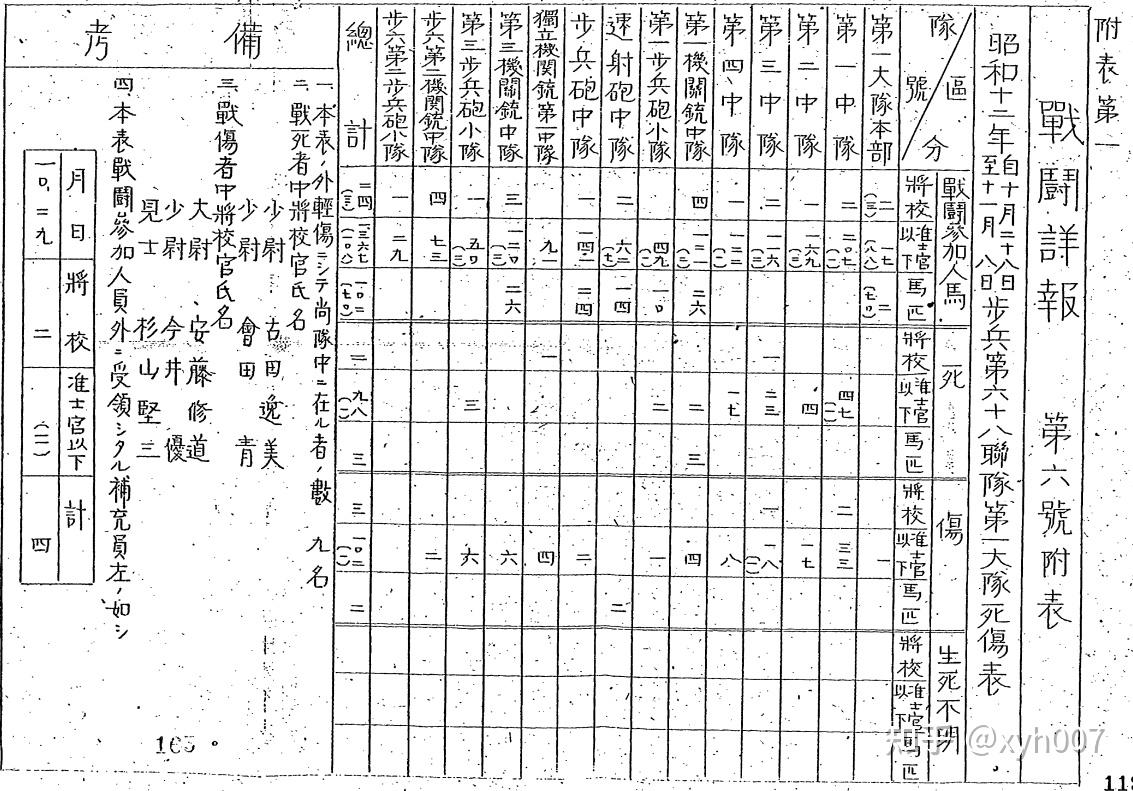 附表第一
戰鬪詳報 第六號附表
昭和十二年自十月二十八日至十一月八日步兵第六十八聯隊第一大隊死傷表
區分 隊號 戰鬪參加人馬 死 傷 生死不明
將校 准士官以下 馬匹 將校 准士官以下 馬匹 將校 准士官以下 馬匹 將校 准士官以下 馬匹
第一大隊本部 二(三) 一七(八八) 二(七〇) 一
第一中隊 二 二〇七 四七(一) 二 三三
第二中隊 一 一六九(三) 四 一七
第三中隊 二 一一六(三) 一 二三 一 一八(一)
第四中隊 一 一三二(一) 一七 八
第一機關銃中隊 四 一三一(二) 二六 二 三 四
第一步兵砲小隊 一 四九 一〇 二 一
速射砲中隊 二 六二(七) 一四 二
步兵砲中隊 四 一四一 二四 二
獨立機関銃第一中隊 一 九一 一 四
第三機關銃中隊 三 一二〇(三) 二六 六
第三步兵砲小隊 一 五〇(三) 三 六
步六第二機関銃中隊 四 七三 二
步六第二步兵砲小隊 一 二九
總計 二四(三) 一三六七(一〇八) 一〇二(七〇) 二 九八(一) 三 三 一〇二(一) 二
備考
一、本表ノ外輕傷ニシテ尚隊中ニ在ル者ノ數 九名
二、戰死者中將校官氏名
少尉 古田逸美
少尉 會田青
三、戰傷者中將校官氏名
大尉 安藤修道
少尉 今井優
見士 杉山堅三
四、本表戰鬪參加人員外ニ受領シタル補充員左ノ如シ
月日 將校 准士官以下 計
一〇、二九 二 (二) 四
165
知乎 @xyh007
118